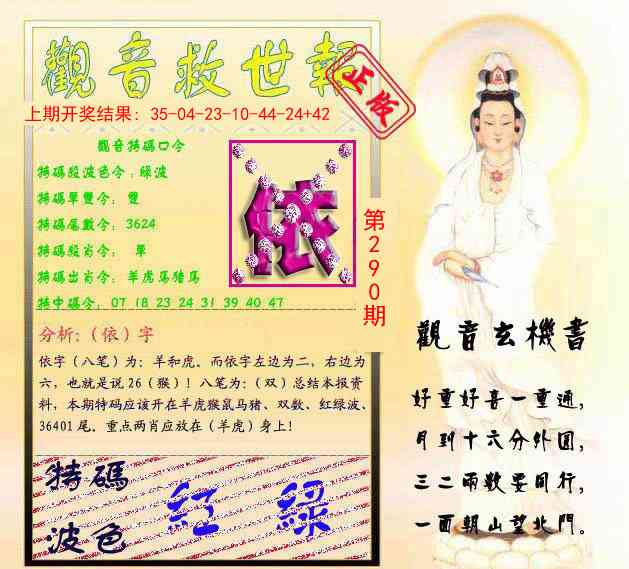 觀音救世報
正版
上期开奖结果：35-04-23-10-44-24+42
觀音特碼口令
特碼段波色令：綠波
特碼單雙令：雙
特碼尾數令：3624
特碼段肖令：單
特碼出肖令：羊虎马猪馬
特中碼令：07 18 23 24 31 39 40 47
依
第290期
分析:（依）字
依字（八笔）为：羊和虎。而依字左边为二，右边为
六，也就是说26（猴）！八笔为:（双）总结本报资
料，本期特码应该开在羊虎猴鼠马猪、双数、红绿波、
36401尾。重点两肖应放在（羊虎）身上！
特碼
波色
紅 綠
觀音玄機書
好重好喜一重通,
月到十六分外圆,
三二兩数要同行,
一面朝山望北門。